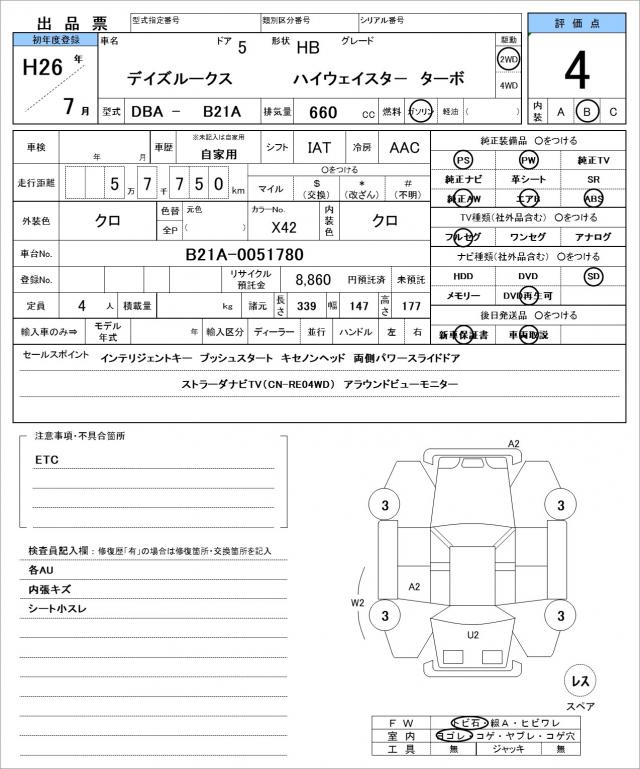 出品票
型式指定番号 類別区分番号 シリアル番号
評価点
初年度登録 車名 ドア 5 形状 HB グレード 駆動
H26年 デイズルークス ハイウェイスター ターボ 2WD 4
7月 4WD
型式 DBA － B21A 排気量 660 CC 燃料 ガソリン 軽油 ( ) 内装 A B C
車検 年 月 車歴 ※未記入は自家用 自家用 シフト IAT 冷房 AAC
純正装備品 〇をつける
PS PW 純正TV
走行距離 5万7千750km 〇をつける
マイル $(交換) *(改ざん) #(不明)
純正ナビ 革シート SR
純正AW エアB ABS
外装色 クロ 色替 元色 全P ( ) カラーNo. X42 内装色 クロ
TV種類(社外品含む) 〇をつける
フルセグ ワンセグ アナログ
車台No. B21A-0051780
ナビ種類(社外品含む) 〇をつける
登録No. リサイクル預託金 8,860 円預託済 未預託
HDD DVD SD
定員 4 人 積載量 kg 諸元 長さ 339 幅 147 高さ 177
メモリー DVD再生可
後日発送品 〇をつける
輸入車のみ⇒ モデル年式 年 輸入区分 ディーラー 並行 ハンドル 左 右
新車保証書 車両取説
セールスポイント インテリジェントキー プッシュスタート キセノンヘッド 両側パワースライドドア
ストラーダナビTV(CN-RE04WD) アラウンドビューモニター
注意事項・不具合箇所
ETC
検査員記入欄：修復歴「有」の場合は修復箇所・交換箇所を記入
各AU
内張キズ
シート小スレ
A2
3 3
A2
W2
3 3
U2
レス
スペア
FW トビ石・線A・ヒビワレ
室内 ヨゴレ・コゲ・ヤブレ・コゲ穴
工具 無 ジャッキ 無